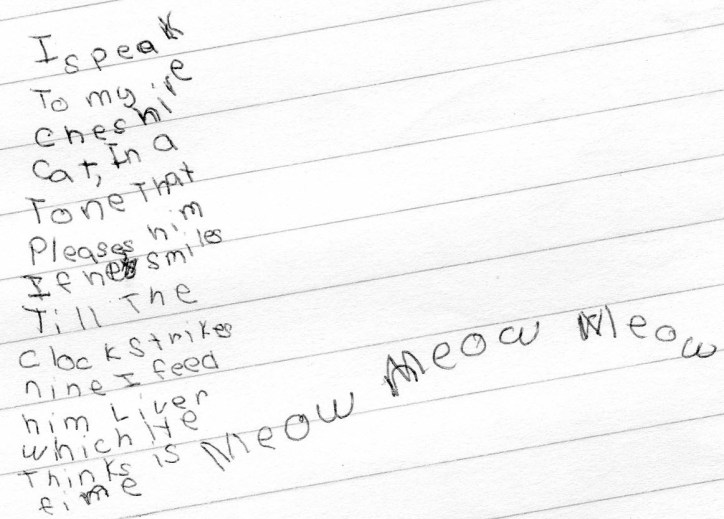 I speak
To my
cheshire
Cat, In a
Tone That
Pleases him
If he smiles
Till The
Clock Strikes
nine I feed
him Liver
which He
Thinks is
fime
Meow Meow Meow